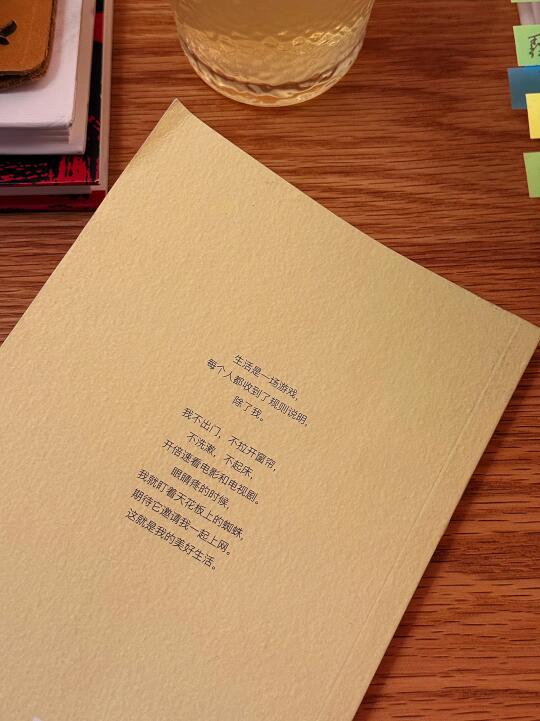 生活是一场游戏，
每个人都收到了规则说明，
除了我。
我不出门，不拉开窗帘，
不洗漱，不起床，
开倍速看电影和电视剧。
眼睛疼的时候，
我就盯着天花板上的蜘蛛，
期待它邀请我一起上网。
这就是我的美好生活。